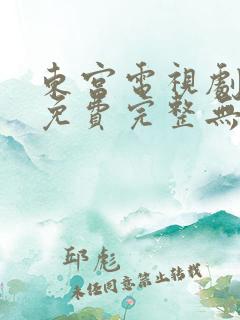 東宮電視劇
免費完整無
邱彪
未经同意禁止转载